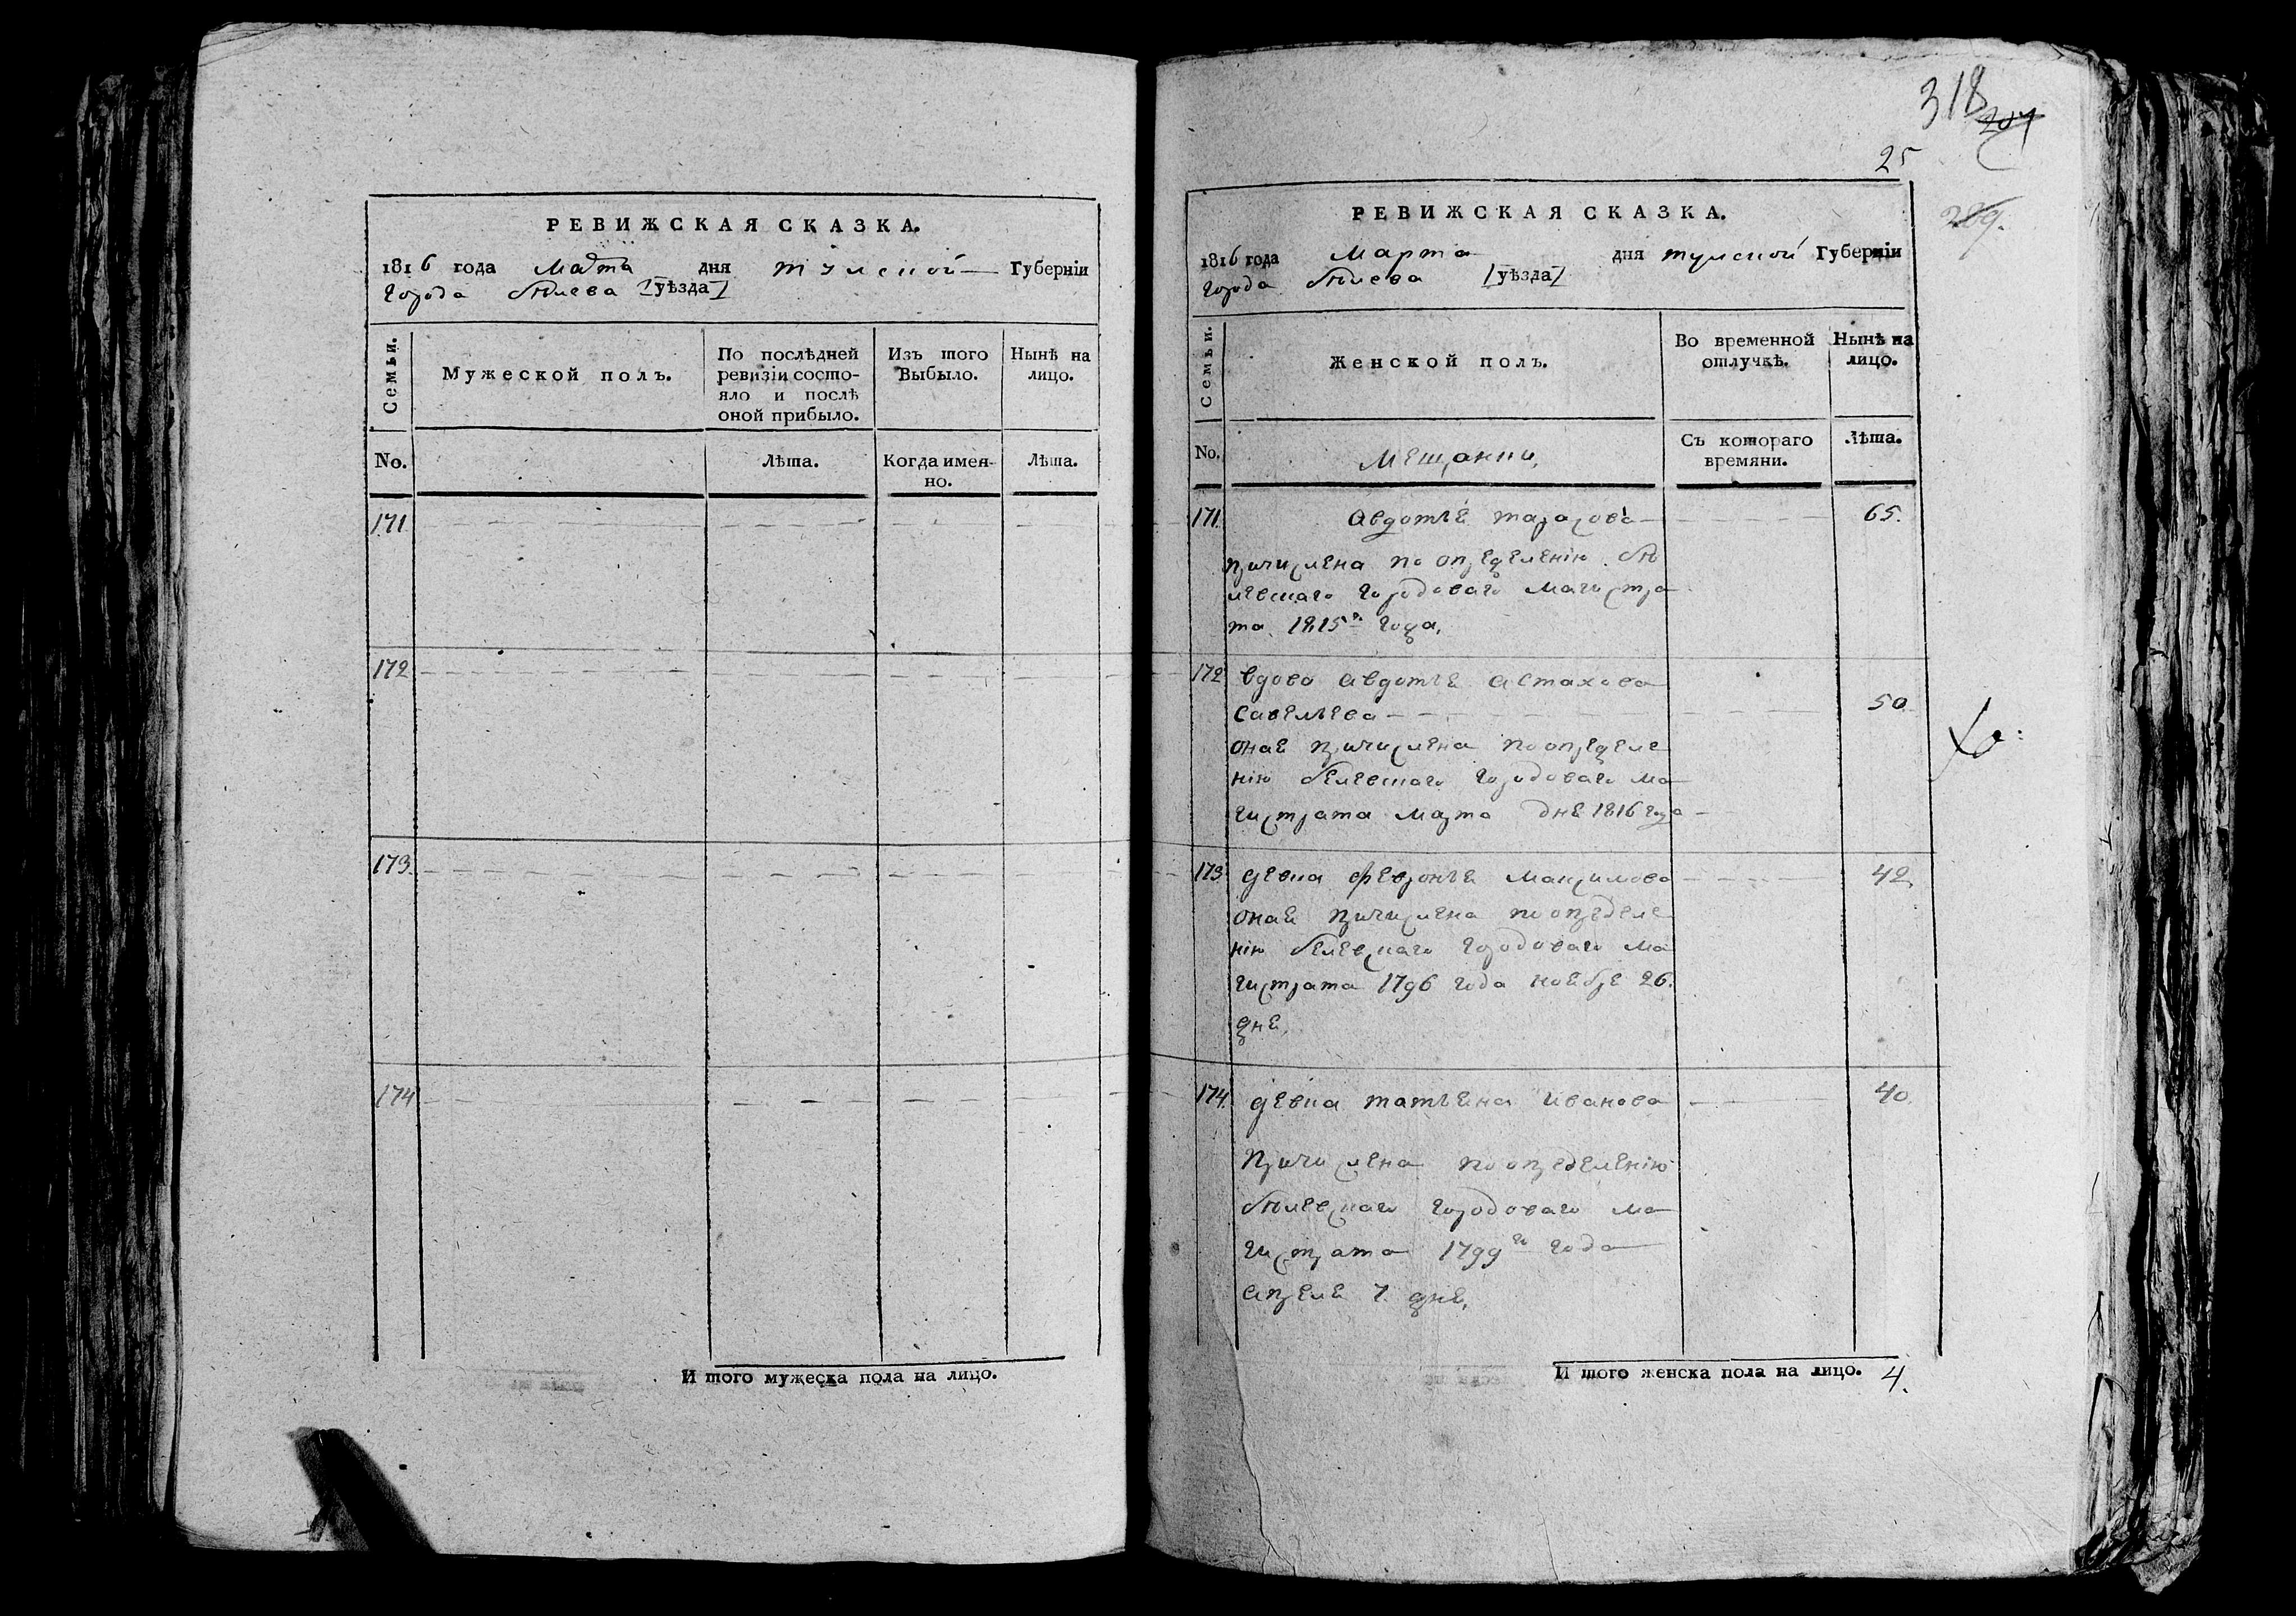 РЕВИЖСКАЯ СКАЗКА.
1816 года Марта дня тулской Губерніи
города Бѣлева уѣзда
Семьи. Мужеской полъ. По послѣдней ревизіи состояло и послѣ оной прибыло. Изъ того Выбыло. Нынѣ на лицо.
No. Лѣта. Когда именно. Лѣта.
171.
172
173.
174
И того мужеска пола на лицо.
318 207
25
289.
РЕВИЖСКАЯ СКАЗКА.
1816 года Марта дня тулской Губерніи
города Бѣлева уѣзда
Семьи. Женской полъ. Во временной отлучкѣ. Нынѣ на лицо.
No. Мещанки, Съ котораго времяни. Лѣта.
171. Авдотья тарасова 65.
причислена по определенію бѣ
левскаго городоваго магистра
та 1815го года,
172 вдова авдотья астахова
савельева 50.
оная причислена по определе
нію белевскаго городоваго ма
гистрата марта дня 1816 года
173 девка февронья максимова 42.
оная причислена по определе
нію белевскаго городоваго ма
гистрата 1796 года ноября 26.
дня,
174. девка татьяна иванова 40.
причислена по определенію
бѣлевскаго городоваго ма
гистрата 1799го года
апреля 7. дня,
И того женска пола на лицо. 4.